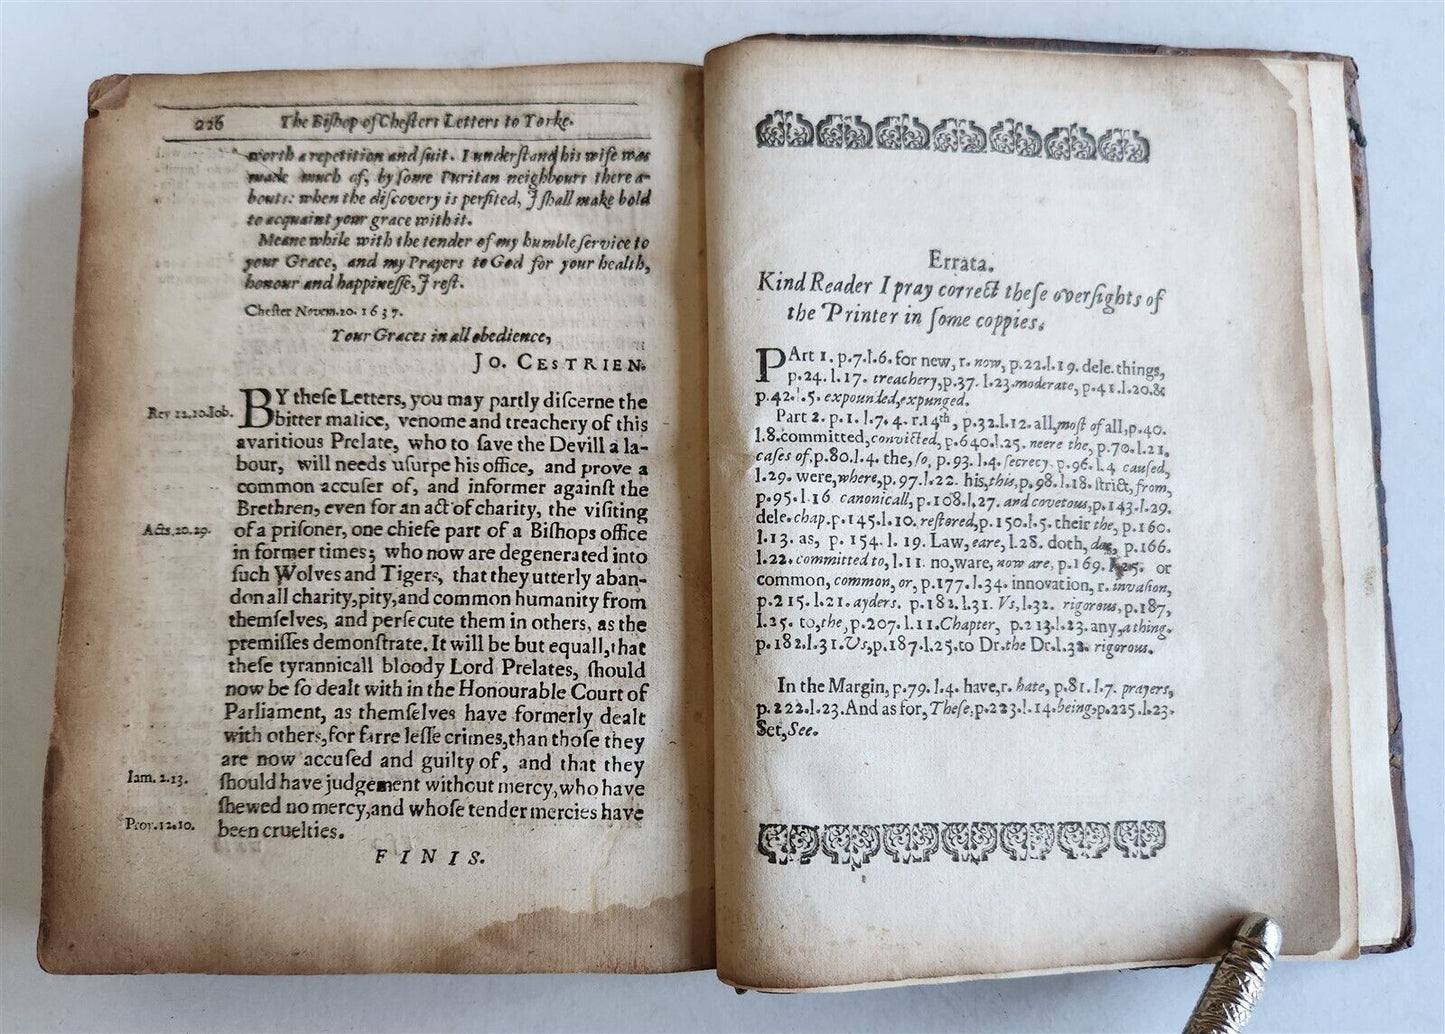 226 The Biſhop of Cheſters Letters to Yorke.
worth a repetition and ſuit. I underſtand his wife was
made much of, by ſome Puritan neighbours there a-
bouts: when the diſcovery is perfited, I ſhall make bold
to acquaint your grace with it.
Meane while with the tender of my humble ſervice to
your Grace, and my Prayers to God for your health,
honour and happineſſe, I reſt.
Cheſter Novem.20. 1637.
Your Graces in all obedience,
JO. CESTRIEN.
BY theſe Letters, you may partly diſcerne the
Rev 12.10.Job.
bitter malice, venome and treachery of this
avaritious Prelate, who to ſave the Devill a la-
bour, will needs uſurpe his office, and prove a
common accuſer of, and informer againſt the
Brethren, even for an act of charity, the viſiting
Acts.20.29.
of a priſoner, one chiefe part of a Biſhops office
in former times; who now are degenerated into
ſuch Wolves and Tigers, that they utterly aban-
don all charity,pity,and common humanity from
themſelves, and perſecute them in others, as the
premiſſes demonſtrate. It will be but equall,that
theſe tyrannicall bloody Lord Prelates, ſhould
now be ſo dealt with in the Honourable Court of
Parliament, as themſelves have formerly dealt
with others,for farre leſſe crimes,than thoſe they
are now accuſed and guilty of, and that they
Iam. 2.13.
ſhould have judgement without mercy,who have
ſhewed no mercy,and whoſe tender mercies have
Prov.12.10.
been cruelties.
FINIS.
Errata.
Kind Reader I pray correct theſe overſights of
the Printer in ſome coppies.
PArt 1. p.7.l.6. for new, r. now, p.22.l.19. dele. things,
p.24. l.17. treachery,p.37. l.23.moderate, p.41.l.20.&
p.42.l.5. expounded,expunged.
Part 2. p.1. l.7. 4. r.14th, p.32.l.12. all,moſt of all,p.40.
l.8.committed,convicted, p.640.l.25. neere the, p.70.l.21.
caſes of,p.80.l.4. the,ſo, p.93. l.4. ſecrecy, p.96. l.4 cauſed,
l.29. were,where,p.97. l.22. his,this,p.98. l.18. ſtrict,from,
p.95.l.16 canonicall, p.108.l.27. and covetous,p.143.l.29.
dele.chap.p.145.l.10. reſtored,p.150.l.5. their the, p.160.
l.13. as, p. 154. l. 19. Law, eare, l.28. doth, p.166.
l.22.committed to, l.11 no,ware, now are, p.169. or
common, common, or, p.177. l.34. innovation, r. invaſion,
p.215.l.21. ayders. p.182.l.31. Vs, l.32. rigorous, p.187,
l.25. to,the, p.207. l.11.Chapter, p.213.l.23. any,a thing.
p.182.l.31.Vs,p.187.l.25.to Dr.the Dr.l.32. rigorous.
In the Margin, p.79. l.4. have,r. hate, p.81. l.7. prayers,
p.222.l.23.And as for, Theſe,p.223.l.14.being,p.225.l.23.
Set,See.